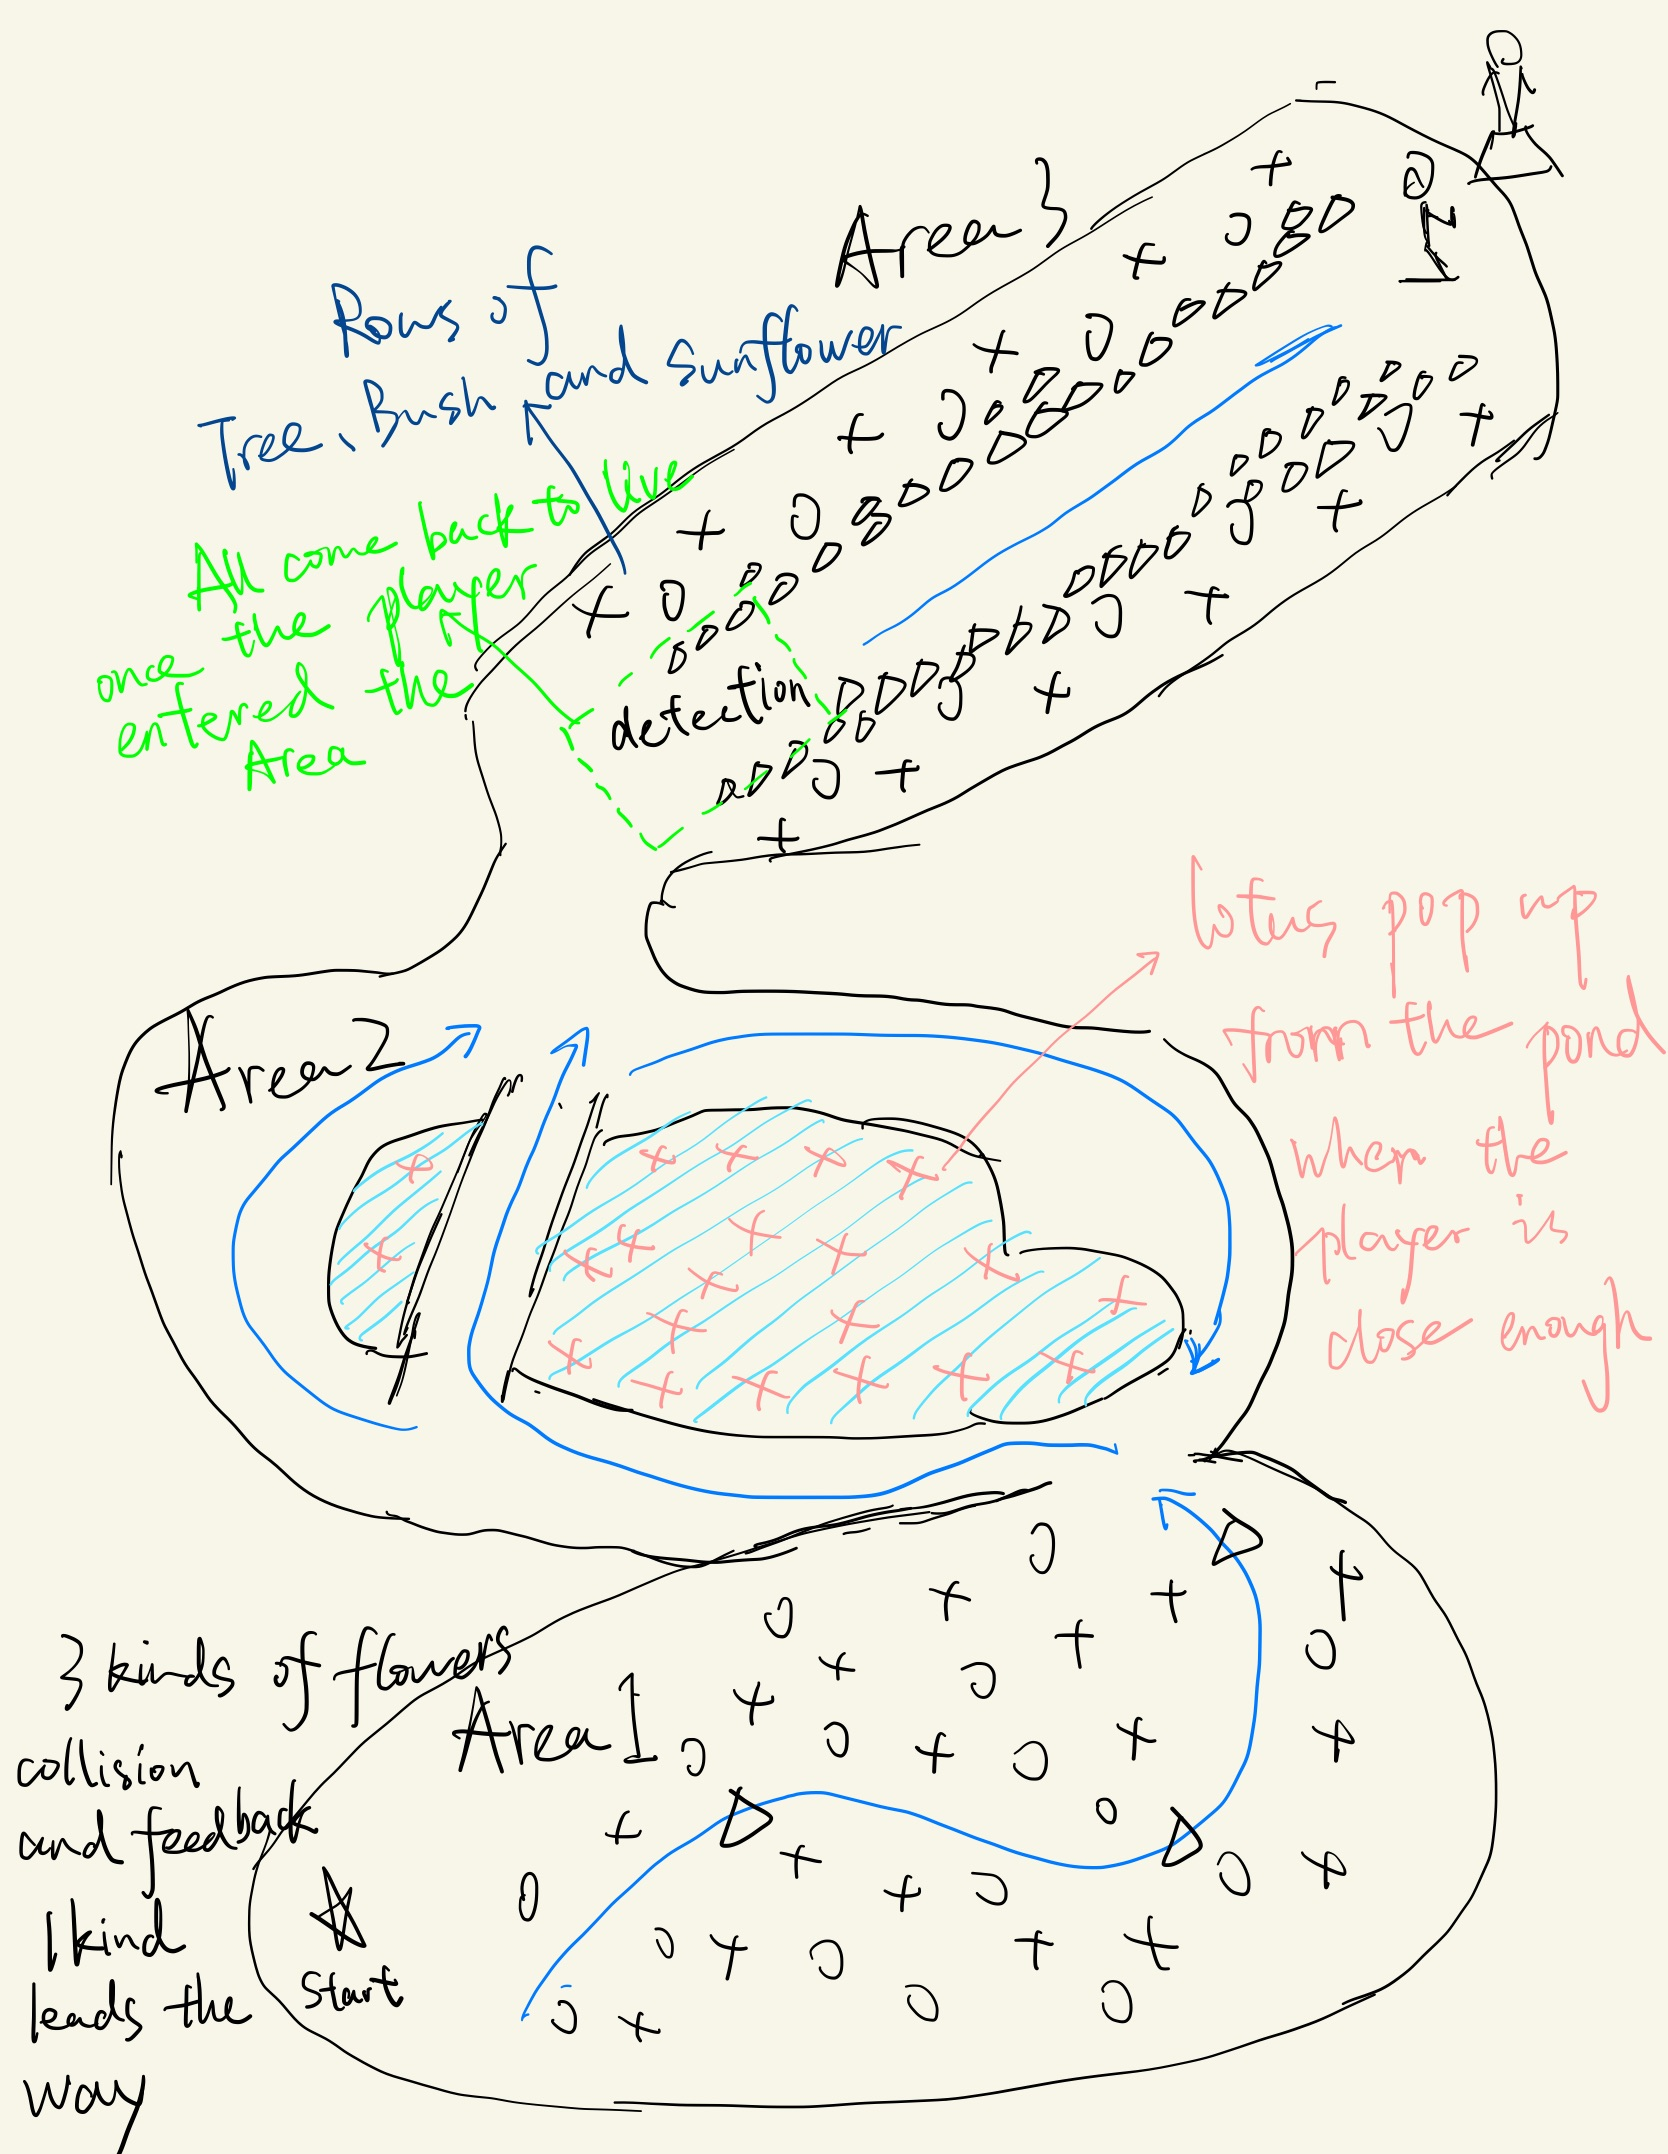 Area 3
Rows of
Tree、Bush and sunflower
All come back to live
once the player
entered the
Area
detection
lotus pop up
from the pond
when the
player is
close enough
Area 2
3 kinds of flowers
collision
and feedback
1 kind
leads the
way
Area 1
Start